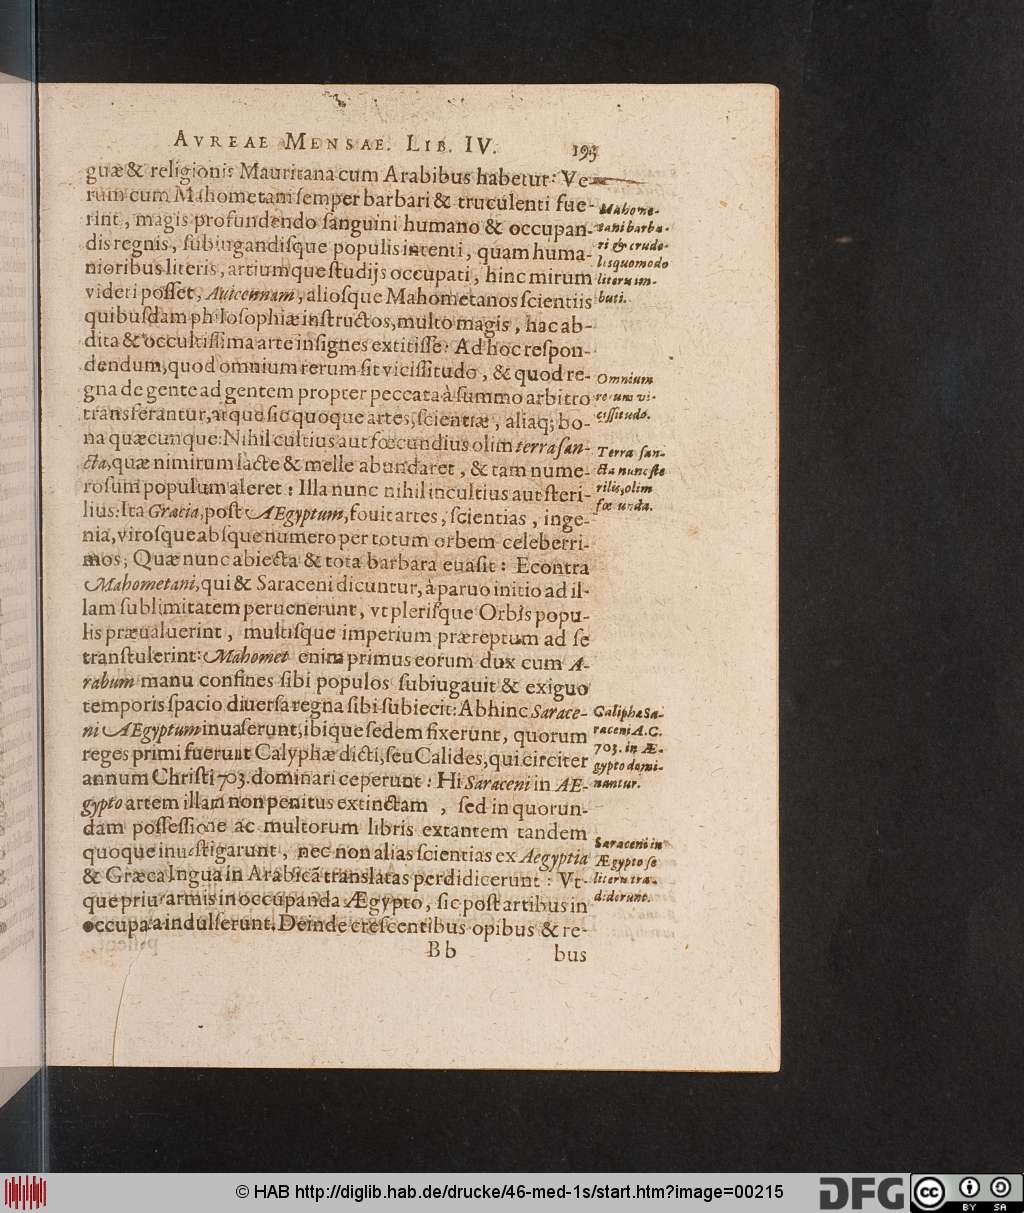 AVREAE MENSAE. LIB. IV. 193
guæ & religionis Mauritana cum Arabibus habetur: Ve-
rum cum Mahometani semper barbari & truculenti fue-
rint, magis profundendo sanguini humano & occupan-
dis regnis, subiugandisque populis intenti, quam huma-
nioribus literis, artiumque studijs occupati, hinc mirum
videri posset, Auicennam, aliosque Mahometanos scientiis
quibusdam philosophiæ instructos, multo magis, hac ab-
dita & occultissima arte insignes extitisse: Ad hoc respon-
dendum, quod omnium rerum sit vicissitudo, & quod re-
gna de gente ad gentem propter peccata à summo arbitro
transferantur, atque sic quoque artes, scientiæ, aliaq; bo-
na quæcunque: Nihil cultius aut fœcundius olim terra san-
cta, quæ nimirum lacte & melle abundaret, & tam nume-
rosum populum aleret: Illa nunc nihil incultius aut steri-
lius: Ita Græcia, post AEgyptum, fouit artes, scientias, inge-
nia, virosque absque numero per totum orbem celeberri-
mos; Quæ nunc abiecta & tota barbara euasit: Econtra
Mahometani, qui & Saraceni dicuntur, à paruo initio ad il-
lam sublimitatem peruenerunt, vt plerisque Orbis popu-
lis præualuerint, multisque imperium præreptum ad se
transtulerint: Mahomet enim primus eorum dux cum A-
rabum manu confines sibi populos subiugauit & exiguo
temporis spacio diuersa regna sibi subiecit: Abhinc Sarace-
ni AEgyptum inuaserunt, ibique sedem fixerunt, quorum
reges primi fuerunt Calyphæ dicti, seu Calides, qui circiter
annum Christi 703. dominari ceperunt: Hi Saraceni in AE-
gypto artem illam non penitus extinctam, sed in quorun-
dam possessione ac multorum libris extantem tandem
quoque inuestigarunt, nec non alias scientias ex Aegyptia
& Græca lingua in Arabicã translatas perdidicerunt: Vt-
que prius armis in occupanda Ægypto, sic post artibus in
occupata indulserunt. Deinde crescentibus opibus & re-
Bb bus
Mahome-
tani barba-
ri & crude-
les quomodo
literis im-
buti.
Omnium
rerum vi-
cissitudo.
Terra san-
cta nunc ste
rilis, olim
fœcunda.
Caliphæ Sa-
raceni A. C.
703. in Æ-
gypto domi-
nantur.
Saraceni in
Ægypto se
literis tra-
diderunt.
© HAB http://diglib.hab.de/drucke/46-med-1s/start.htm?image=00215
DFG
cc BY SA